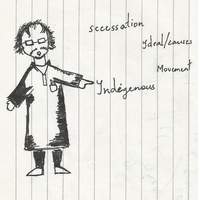 secessation
Ideal/causes
Movement
Indegenous